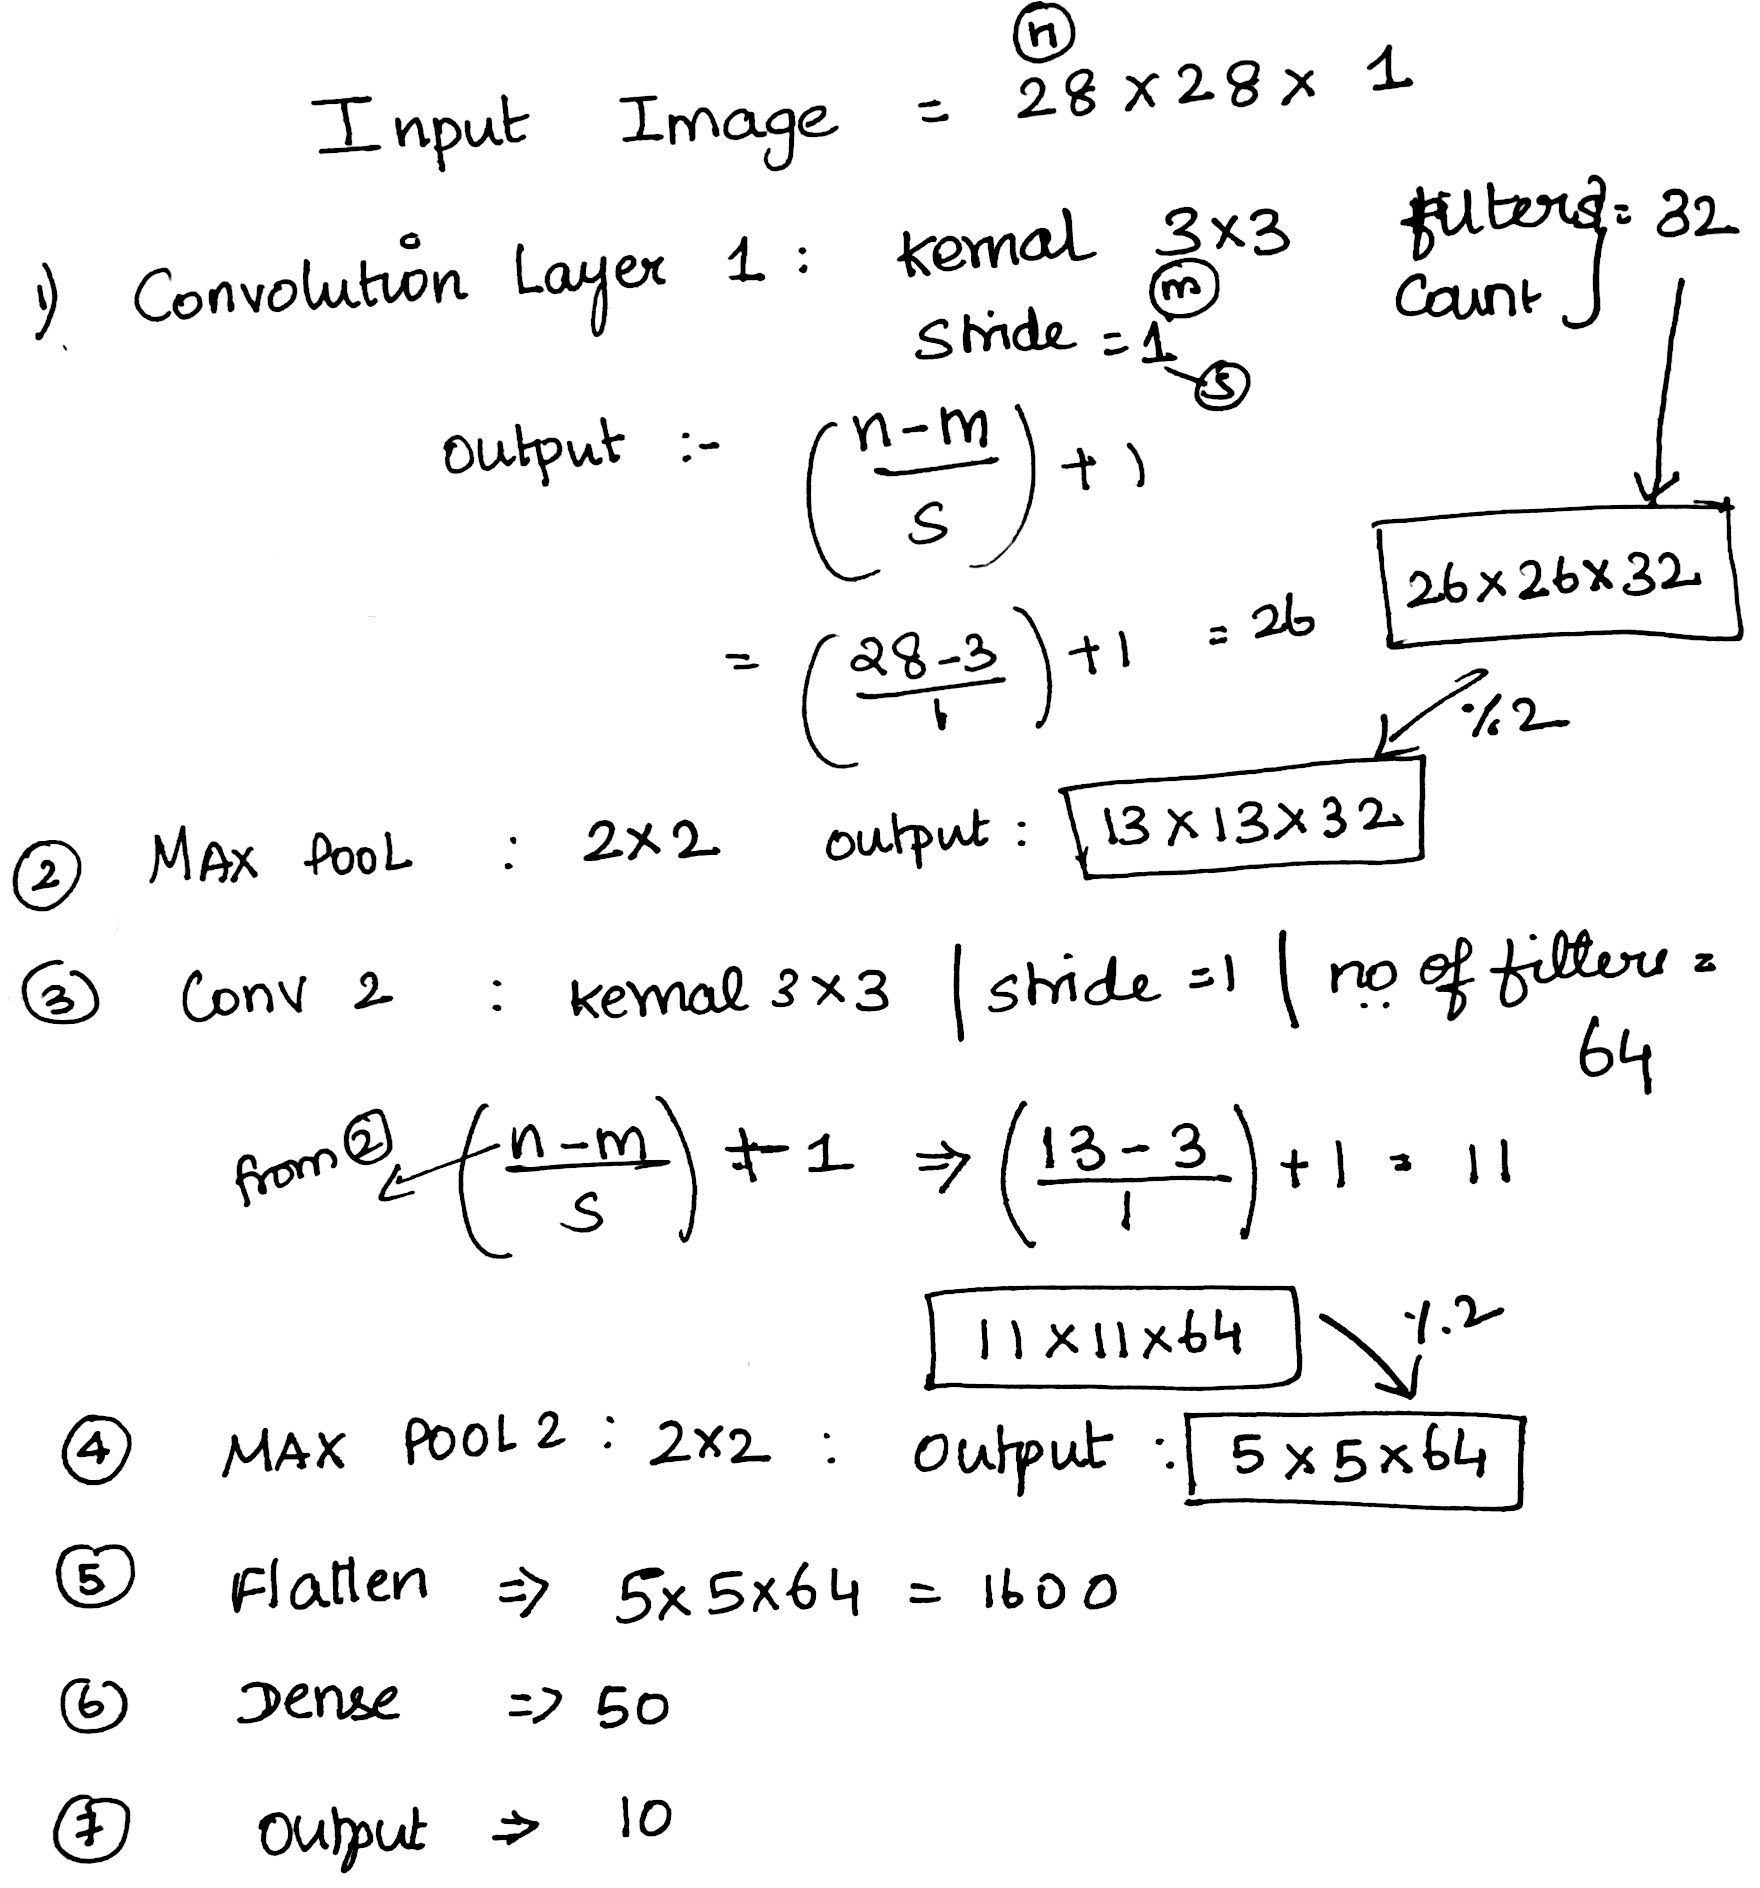 n
Input Image = 28 x 28 x 1
1) Convolution Layer 1 : kernal 3x3 filters } = 32
m count
stride = 1
s
output :- (n-m / s) + 1
26 x 26 x 32
= (28-3 / 1) + 1 = 26
% 2
2 MAX POOL : 2x2 output : 13 x 13 x 32
3 Conv 2 : kernal 3x3 | stride = 1 | no of filters =
64
from 2 (n-m / s) + 1 ⇒ (13-3 / 1) + 1 = 11
11 x 11 x 64 % 2
4 MAX POOL 2 : 2x2 : output : 5 x 5 x 64
5 Flatten ⇒ 5x5x64 = 1600
6 Dense ⇒ 50
7 output ⇒ 10